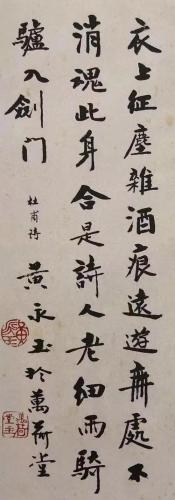 衣上征塵雜酒痕遠遊無處不
消魂此身合是詩人老細雨騎
驢入劍门
杜甫詩
黃永玉於萬荷堂